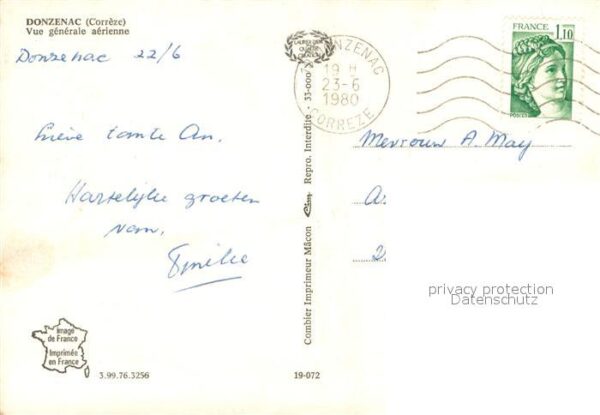 DONZENAC (Corrèze)
Vue générale aérienne
Donzenac 22/6
Lieve tante An.
Hartelijke groeten
van.
Emilie
Image
de France
Imprimée
en France
3.99.76.3256
19-072
Combier Imprimeur Mâcon
Repro. Interdite
33-000
DONZENAC
19 H
23-6
1980
CORREZE
FRANCE
1,10
POSTES
Mevrouw A. May
A
2
privacy protection
Datenschutz